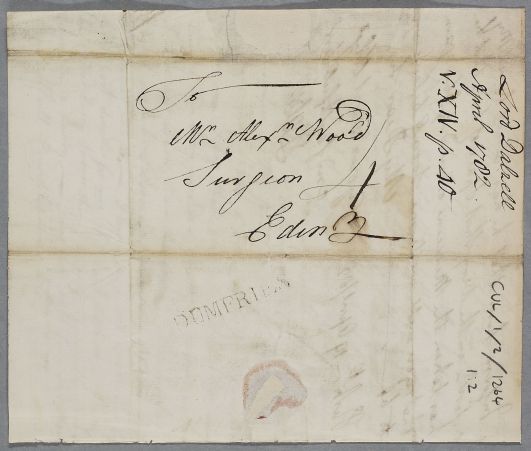 To
Mr. Alexr. Wood
Surgeon
Edinr
4
DUMFRIES
Lord Dalzell
April 1782.
V. XIV. p. 40
CUL/1/2/1264
1:2